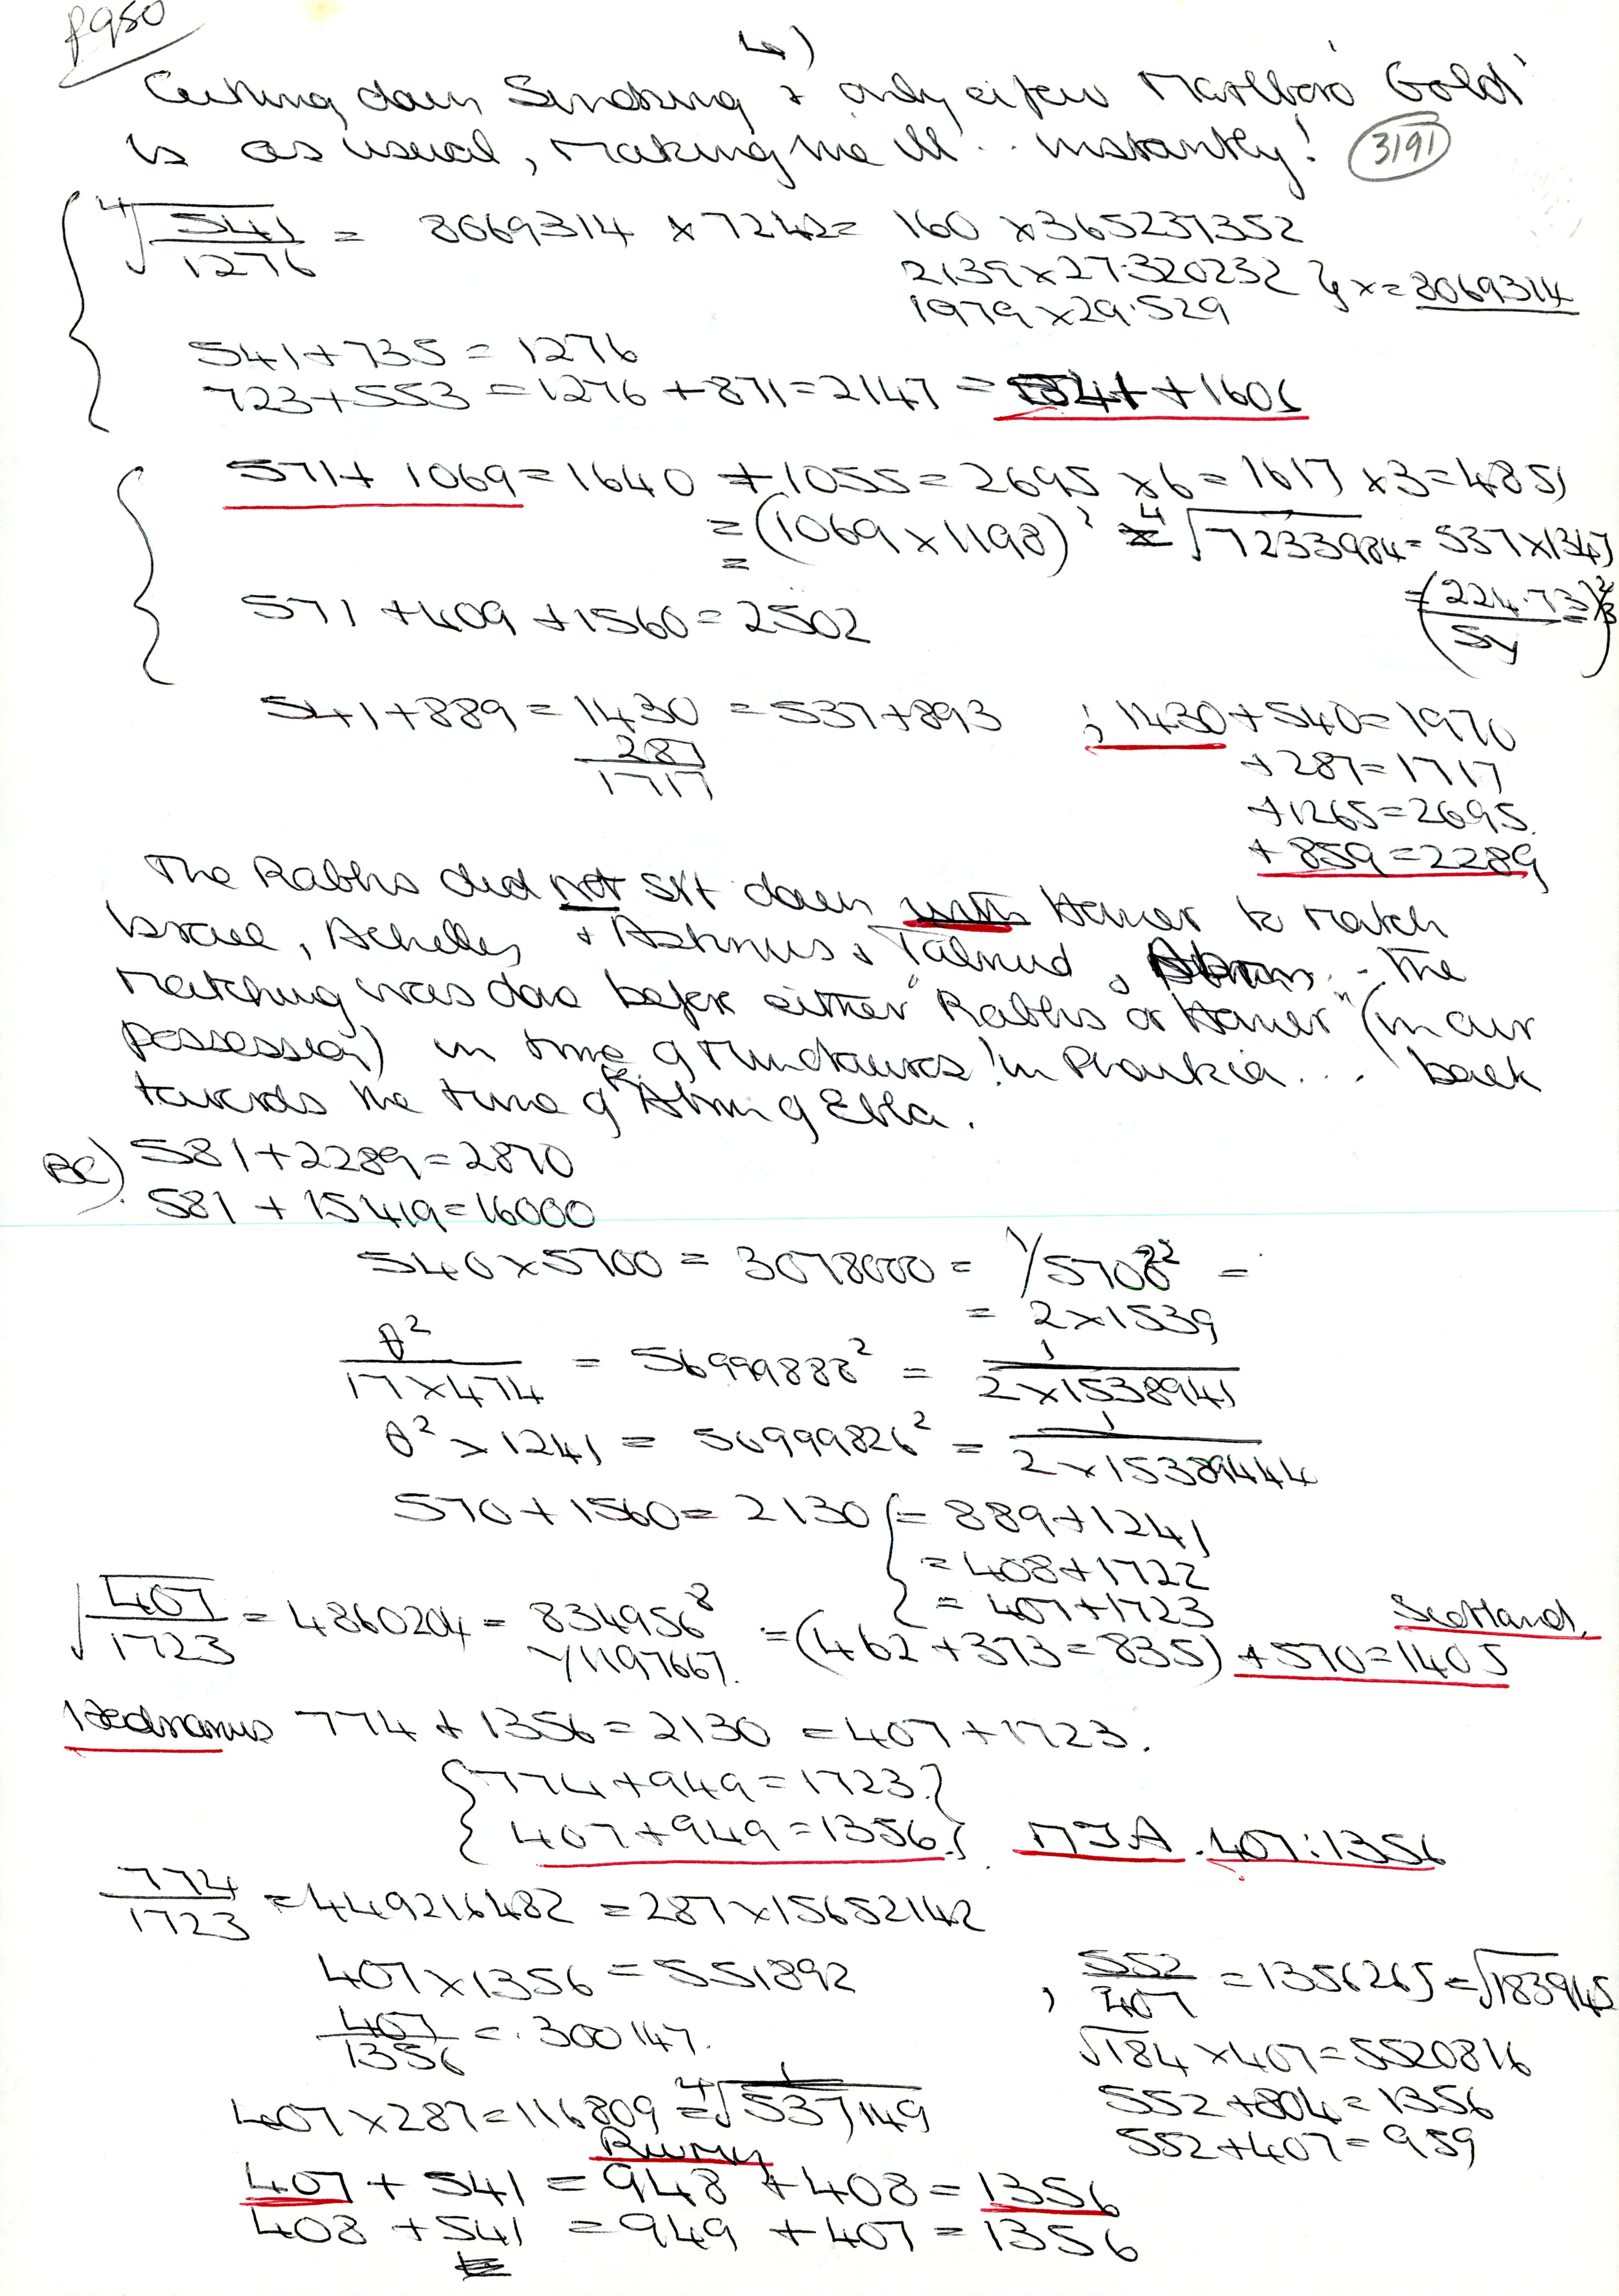 p980
4)
Cutting down Smoking + only a few Marlboro 'Gold'
is as usual, making me ill .. instantly! 3191
4√541/1276 = 8069314 x 7242 = 160 x 365231352
2139 x 27.320232 } x = 8069314
1979 x 29.529
541 + 735 = 1276
723 + 553 = 1276 + 871 = 2147 = 541 + 1606
571 + 1069 = 1640 + 1055 = 2695 x 6 = 1617 x 3 = 4851
= (1069 x 1198)² = 4√7233984 = 537 x 1347
= (224.73 / Sy)
571 + 409 + 1560 = 2502
541 + 889 = 1430 = 537 + 893 ; 1430 + 540 = 1970
287
1717
+ 287 = 1717
+ 1265 = 2695
+ 859 = 2289
The Rabbis did not sit down with Homer to match
Israel, Achilles + & Talmud, .. The
matching was done before either "Rabbis or Homer" (in our
possession) in time of Minotaurs! in .... back
towards the time of Abram of Ebla.
BC) 581 + 2289 = 2870
581 + 15419 = 16000
540 x 5700 = 3078000 = 1/5700² =
= 2 x 1539
θ²/17 x 474 = 56999888² = 1/2 x 1538941
θ² x 1241 = 56999826² = 1/2 x 15389444
570 + 1560 = 2130 { = 889 + 1241
= 408 + 1722
= 407 + 1723
√407/1723 = 4860204 = 834956⁸ = (462 + 373 = 835) + 570 = 1405 Scotland.
Y1197667.
774 + 1356 = 2130 = 407 + 1723.
{ 774 + 949 = 1723. }
{ 407 + 949 = 1356. } MJA. 407:1356
774/1723 = 449216482 = 287 x 15652142
407 x 1356 = 551892 , 552/407 = 1356265 = √183945
407/1356 = .300147. √184 x 407 = 5520816
407 x 287 = 116809 = 4√1/537149 552 + 804 = 1356
552 + 407 = 959
407 + 541 = 948 + 408 = 1356
408 + 541 = 949 + 407 = 1356